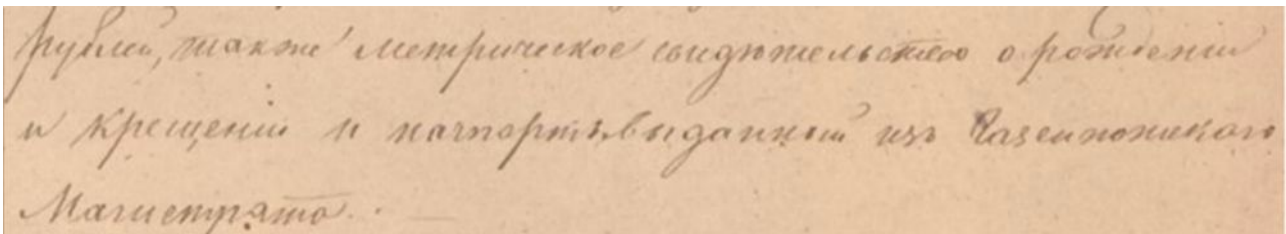 рублей, также метрическое свидѣтельство о рождении
и крещении и пачпортъ, выданный изъ Газенпотскаго
Магистрата.